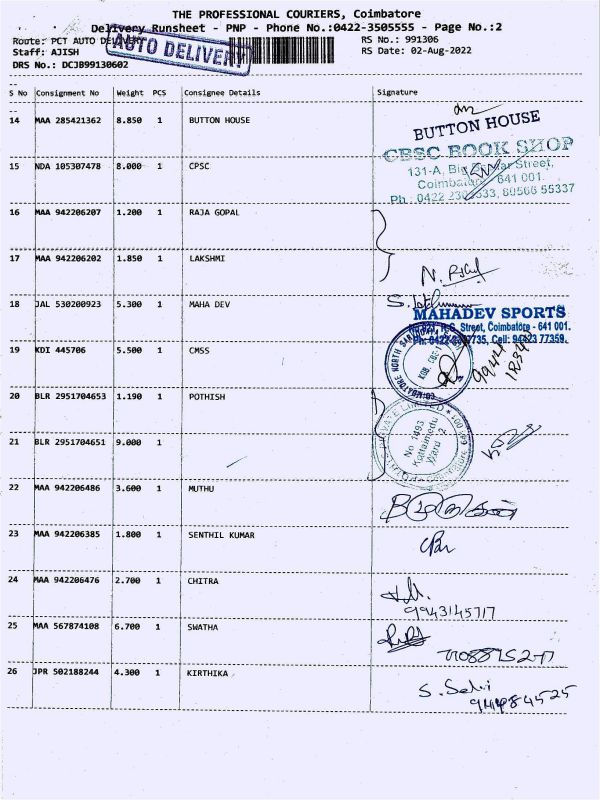 THE PROFESSIONAL COURIERS, Coimbatore
Delivery Runsheet - PNP - Phone No.:0422-3505555 - Page No.:2
Route: PCT AUTO DELIVERY
RS No.: 991306
AUTO DELIVERY
Staff: AJISH
RS Date: 02-Aug-2022
DRS No.: DCJB99130602
S No Consignment No Weight PCS Consignee Details Signature
14 MAA 285421362 8.850 1 BUTTON HOUSE
BUTTON HOUSE
CBSC BOOK SHOP
15 NDA 105307478 8.000 1 CPSC
131-A, Big Street,
Coimbatore 641 001.
Ph : 0422 33, 80566 55337
16 MAA 942206207 1.200 1 RAJA GOPAL
17 MAA 942206202 1.850 1 LAKSHMI
18 JAL 530200923 5.300 1 MAHA DEV
MAHADEV SPORTS
Street, Coimbatore - 641 001.
7735, Cell: 94423 77359.
19 KDI 445706 5.500 1 CMSS
20 BLR 2951704653 1.190 1 POTHISH
No 1493
Ward 2
21 BLR 2951704651 9.000 1
22 MAA 942206486 3.600 1 MUTHU
23 MAA 942206385 1.800 1 SENTHIL KUMAR
24 MAA 942206476 2.700 1 CHITRA
9943145717
25 MAA 567874108 6.700 1 SWATHA
26 JPR 502188244 4.300 1 KIRTHIKA
S. Selvi